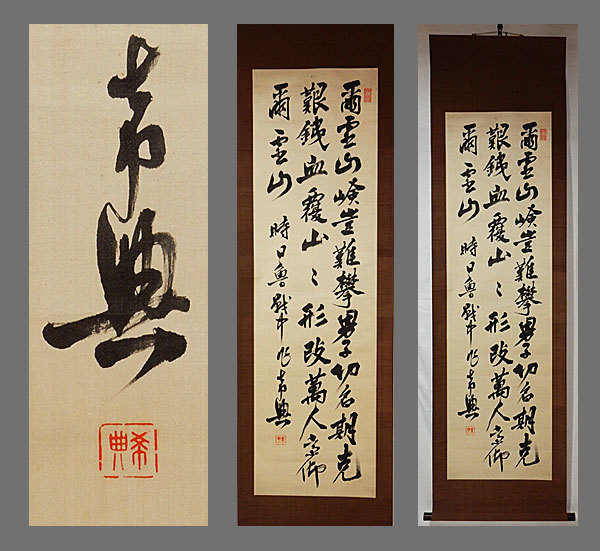 希典
希典
爾霊山嶮豈難攀男子功名期克
艱銕血覆山々形改萬人斉仰
爾霊山 時日魯戦中作 希典
爾霊山嶮豈難攀男子功名期克
艱銕血覆山々形改萬人斉仰
爾霊山 時日魯戦中作 希典